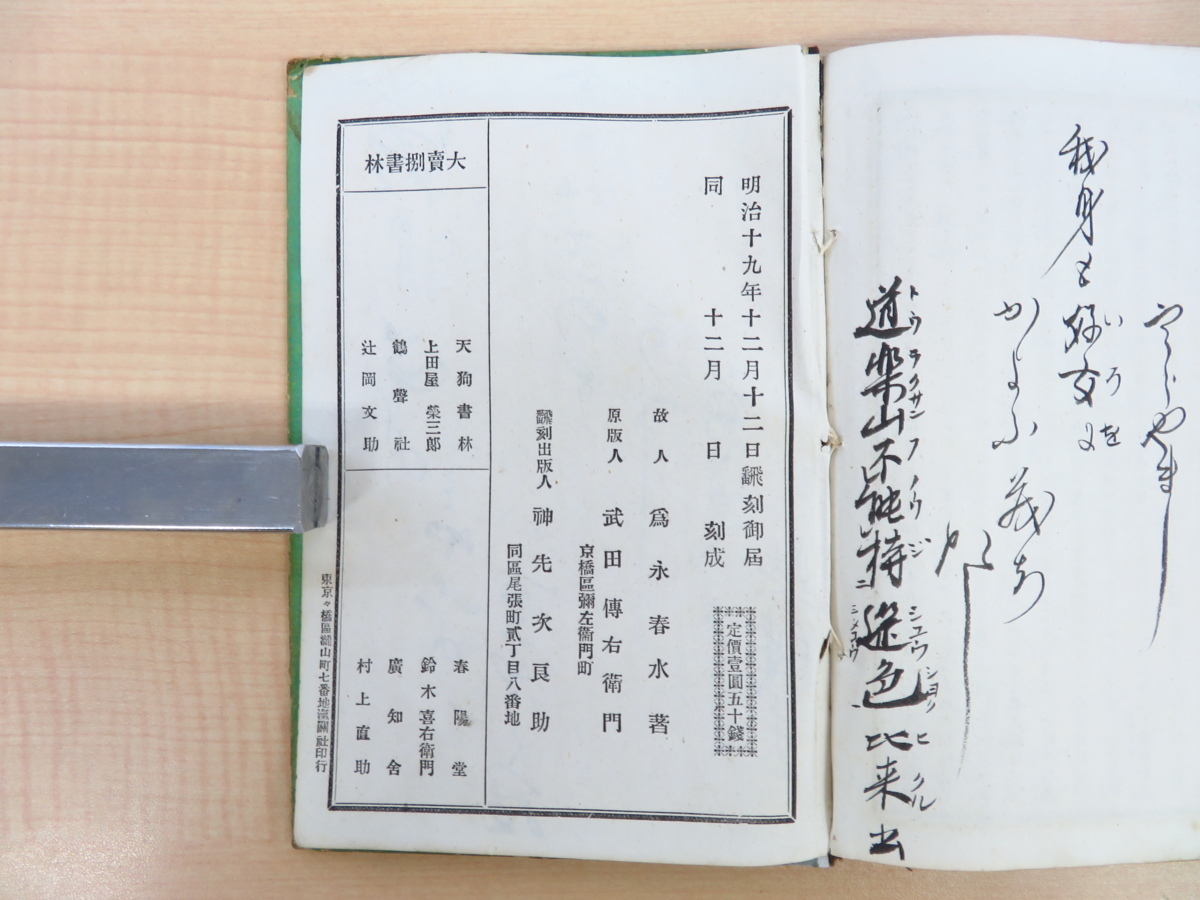 我身も好女に
いろを
かよふ
道楽山不能持迷色比来出
トウラクサンフノウジ
シュウショク
ヒクル
明治十九年十二月十二日飜刻御屆
同 十二月 日 刻成
定價壹圓五十錢
故人 爲永春水 著
原版人 武田傳右衛門
京橋區彌左衞門町
飜刻出版人 神先次良助
同區尾張町貳丁目八番地
大賣捌書林
天狗書林
上田屋 榮三郎
鶴聲社
辻岡文助
春陽堂
鈴木喜右衛門
廣知舍
村上直助
東京々橋區瀧山町七番地
社印行